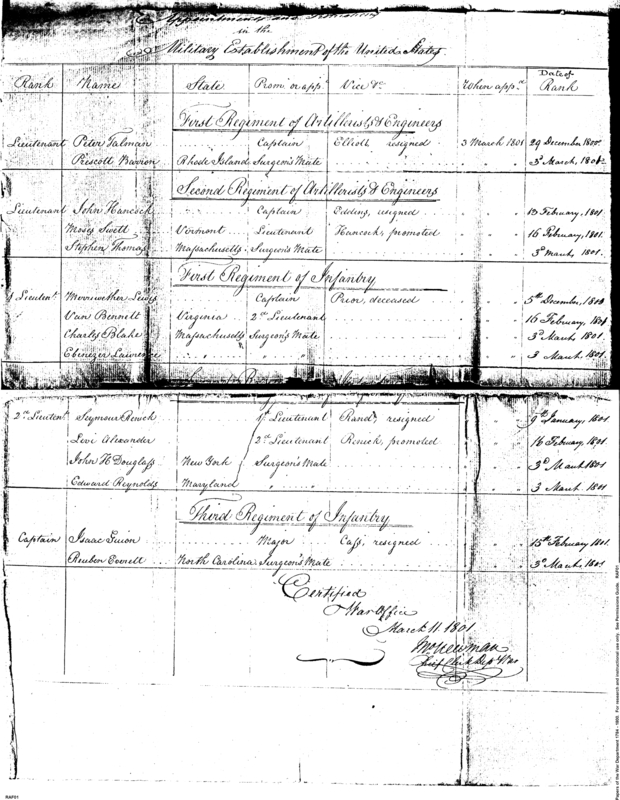 Appointments and Promotions
in the
Military Establishment of the United States
Rank Name State Prom. or app.d Vice &c When app.d Date of Rank
First Regiment of Artillerists & Engineers
Lieutenant Peter Talman . . . . Captain Elliott resigned 3 March 1801 29 December 1800.
Prescott Barron Rhode Island Surgeon's Mate . . . . 3d March, 1801.
Second Regiment of Artillerists & Engineers
Lieutenant John Hancock . . . . Captain Eddins, resigned " " 13 February, 1801.
Moses Swett Vermont . . . . Lieutenant Hancock, promoted " " 16 February, 1801.
Stephen Thomas Massachusetts Surgeon's Mate . . . . 3d March, 1801.
First Regiment of Infantry
1 Lieuten.t Merriwether Lewis . . . . Captain Prior, deceased " " 5th December, 1800
Van Bennett Virginia . . 2d Lieutenant . . . . 16 February, 1801
Charles Blake Massachusetts Surgeon's Mate . . . . 3d March, 1801.
Ebenezer Lawrence " " " " . . . . 3 March, 1801.
2d Lieuten.t Seymour Renick . . . . 1st Lieutenant Rand, resigned . . 9th January, 1801
Levi Alexander . . . . 2d Lieutenant Renick, promoted . . 16 February, 1801.
John H Douglass New York Surgeon's Mate . . . . 3d March 1801
Edward Reynolds Maryland " " . . . . 3 March 1801
Third Regiment of Infantry
Captain Isaac Guion . . . . Major Cass, resigned . . . . 15th February 1801.
Reuben Everett . . North Carolina Surgeon's Mate . . . . 3d March, 1801
Certified
War Office
March 11. 1801
Jno Newman
Chief Clerk Dept War
RAF01
Papers of the War Department 1784 - 1800. For research and instructional use only. See Permissions Guide. RAF01